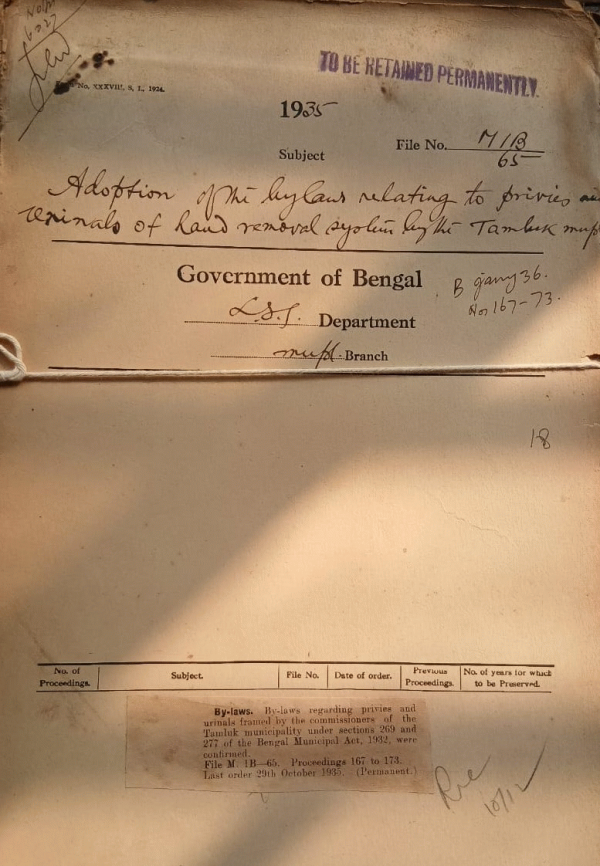 TO BE RETAINED PERMANENTLY.
No. XXXVIII, S. I., 1934.
1935
File No. M1B
65
Subject
Adoption of the bylaws relating to privies
urinals of hand removal system by the Tamluk mupl
Government of Bengal
B Jany 36.
Nos 167-73.
L.S.G. Department
mupl Branch
18
No. of Proceedings. Subject. File No. Date of order. Previous Proceedings. No. of years for which to be Preserved.
By-laws. By-laws regarding privies and
urinals framed by the commissioners of the
Tamluk municipality under sections 269 and
277 of the Bengal Municipal Act, 1932, were
confirmed.
File M. 1B—65. Proceedings 167 to 173.
Last order 29th October 1935. (Permanent.)
10/12